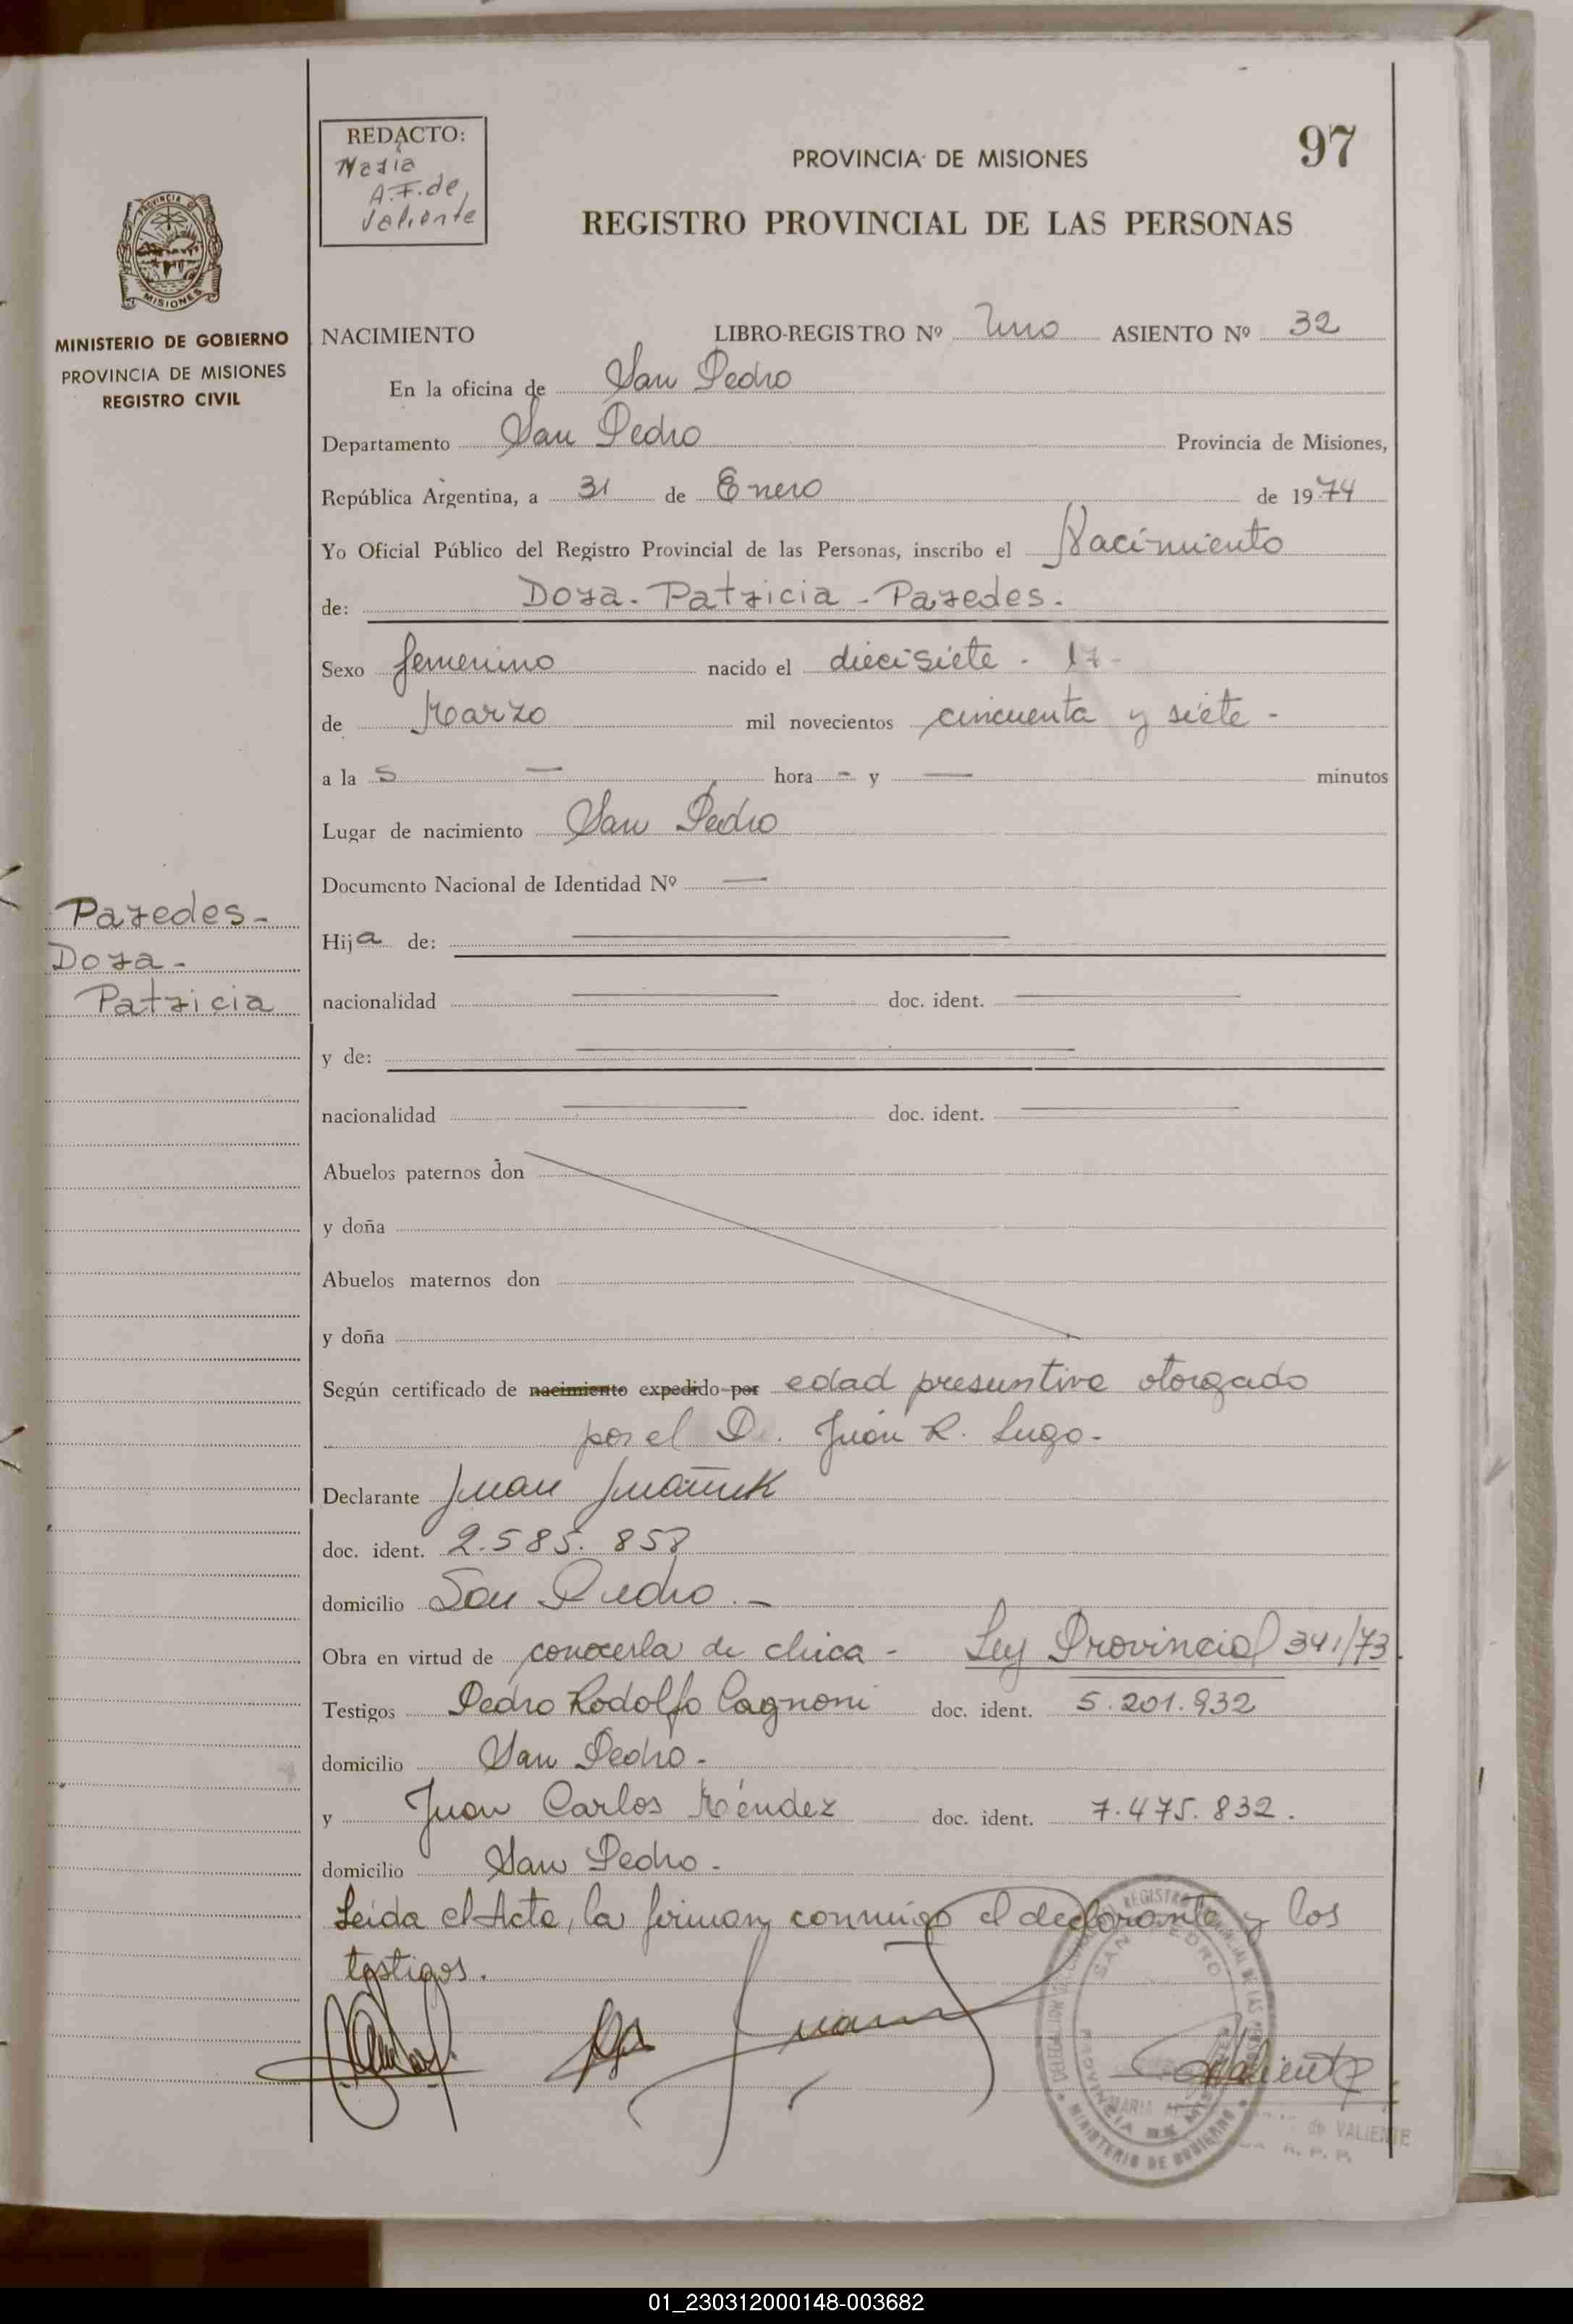 REDACTO:
Maria
A.F. de
Valiente
PROVINCIA DE MISIONES
97
REGISTRO PROVINCIAL DE LAS PERSONAS
PROVINCIA DE
MISIONES
MINISTERIO DE GOBIERNO
PROVINCIA DE MISIONES
REGISTRO CIVIL
NACIMIENTO LIBRO-REGISTRO Nº Uno ASIENTO Nº 32
En la oficina de San Pedro
Departamento San Pedro Provincia de Misiones,
República Argentina, a 31 de Enero de 1974
Yo Oficial Público del Registro Provincial de las Personas, inscribo el Nacimiento
de: Dora - Patricia - Paredes.
Sexo femenino nacido el diecisiete - 17 -
de Marzo mil novecientos cincuenta y siete -
a la s — hora - y — minutos
Lugar de nacimiento San Pedro
Documento Nacional de Identidad Nº —
Paredes -
Dora -
Patricia
Hija de: —
nacionalidad — doc. ident. —
y de: —
nacionalidad — doc. ident. —
Abuelos paternos don
y doña
Abuelos maternos don
y doña
Según certificado de nacimiento expedido por edad presuntiva otorgado
por el Dr. Juan R. Lugo -
Declarante Juan
doc. ident. 2.585.858
domicilio San Pedro . -
Obra en virtud de conocerla de chica - Ley Provincial 341/73
Testigos Pedro Rodolfo Cagnoni doc. ident. 5.201.932
domicilio San Pedro -
y Juan Carlos Méndez doc. ident. 7.475.832.
domicilio San Pedro -
Leida el Acta, la firman conmigo el declarante y los
testigos.
SAN PEDRO
PROVINCIA DE MISIONES
MINISTERIO DE GOBIERNO
Valiente
de VALIENTE
R. P. P.
01_230312000148-003682